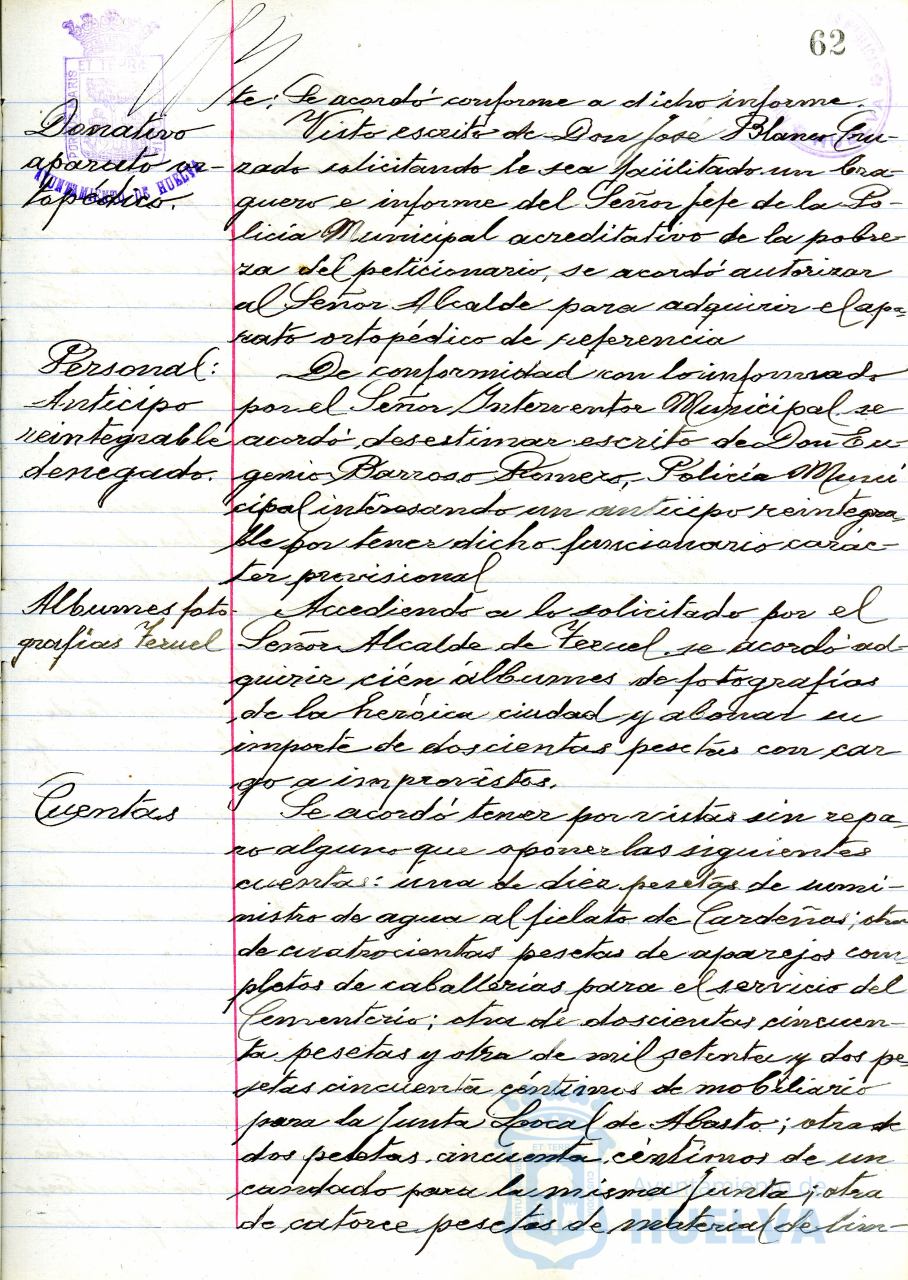 62
te; Se acordó conforme a dicho informe.
Donativo
aparato or-
topédico.
AYUNTAMIENTO DE HUELVA
Visto escrito de Don José Blanco Cru-
zado solicitando le sea facilitado un bra-
guero e informe del Señor Jefe de la Po-
licía Municipal acreditativo de la pobre-
za del peticionario, se acordó autorizar
al Señor Alcalde para adquirir el apa-
rato ortopédico de referencia
Personal:
Anticipo
reintegrable
denegado.
De conformidad con lo informado
por el Señor Interventor Municipal se
acordó desestimar escrito de Don Eu-
genio Barroso Romero, Policía Muni
cipal interesando un anticipo reintegra-
ble por tener dicho funcionario carác-
ter provisional
Albumes foto-
grafías Teruel
Accediendo a lo solicitado por el
Señor Alcalde de Teruel se acordó ad-
quirir cién álbumes de fotografías
de la heróica ciudad y abonar su
importe de doscientas pesetas con car
go a improvistos.
Cuentas
Se acordó tener por vistas sin repa-
ro alguno que oponer las siguientes
cuentas: una de diez pesetas de sumi-
nistro de agua al fielato de Cardeñas; otra
de cuatrocientas pesetas de aparejos com-
pletos de caballerías para el servicio del
Cementerio; otra de doscientas cincuen-
ta pesetas y otra de mil setenta y dos pe-
setas cincuenta céntimos de mobiliario
para la Junta Local de Abasto; otra de
dos pesetas cincuenta céntimos de un
candado para la misma Junta; otra
de catorce pesetas de material de lim-
Ayuntamiento de
HUELVA